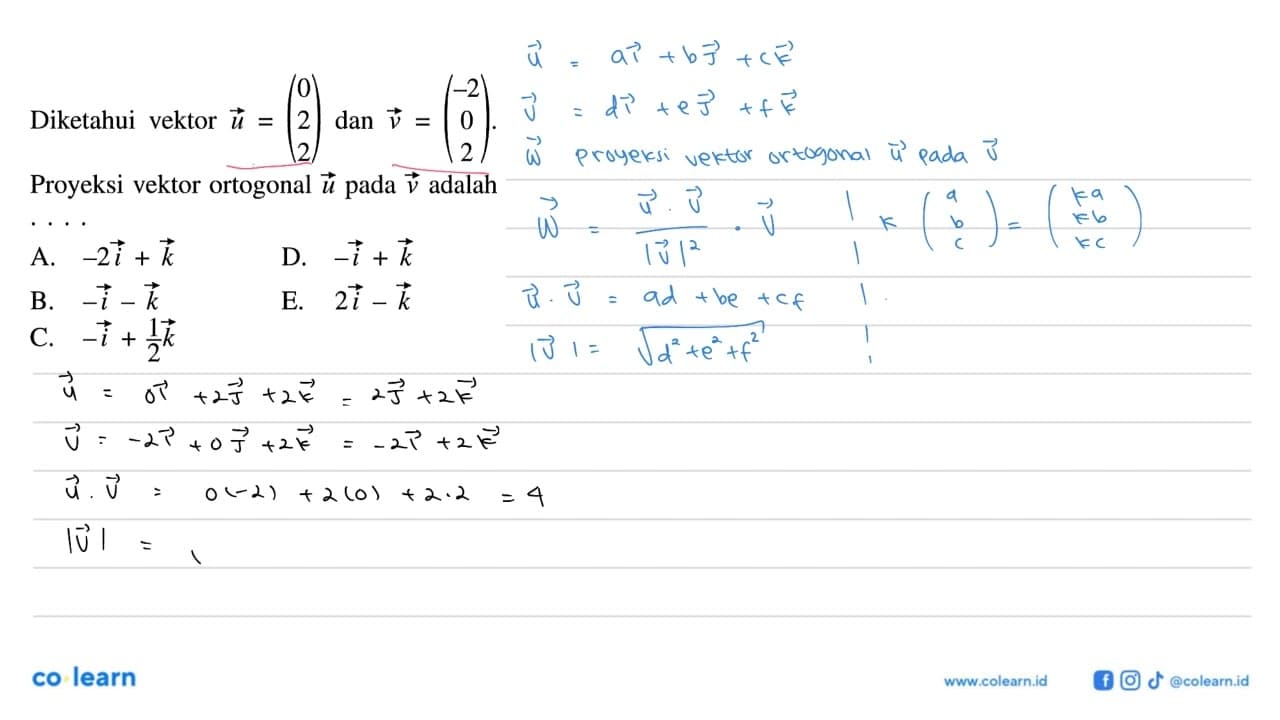 Diketahui vektor $\vec{u} = \begin{pmatrix} 0 \\ 2 \\ 2 \end{pmatrix}$ dan $\vec{v} = \begin{pmatrix} -2 \\ 0 \\ 2 \end{pmatrix}$.
Proyeksi vektor ortogonal $\vec{u}$ pada $\vec{v}$ adalah
. . . .
A. $-2\vec{i} + \vec{k}$ D. $-\vec{i} + \vec{k}$
B. $-\vec{i} - \vec{k}$ E. $2\vec{i} - \vec{k}$
C. $-\vec{i} + \frac{1}{2}\vec{k}$
$\vec{u} = a\vec{i} + b\vec{j} + c\vec{k}$
$\vec{v} = d\vec{i} + e\vec{j} + f\vec{k}$
$\vec{w}$ proyeksi vektor ortogonal $\vec{u}$ pada $\vec{v}$
$\vec{w} = \frac{\vec{u} \cdot \vec{v}}{|\vec{v}|^2} \cdot \vec{v}$ $k \begin{pmatrix} a \\ b \\ c \end{pmatrix} = \begin{pmatrix} ka \\ kb \\ kc \end{pmatrix}$
$\vec{u} \cdot \vec{v} = ad + be + cf$
$|\vec{v}| = \sqrt{d^2 + e^2 + f^2}$
$\vec{u} = 0\vec{i} + 2\vec{j} + 2\vec{k} = 2\vec{j} + 2\vec{k}$
$\vec{v} = -2\vec{i} + 0\vec{j} + 2\vec{k} = -2\vec{i} + 2\vec{k}$
$\vec{u} \cdot \vec{v} = 0(-2) + 2(0) + 2 \cdot 2 = 4$
$|\vec{v}| =$
co·learn
www.colearn.id
@colearn.id